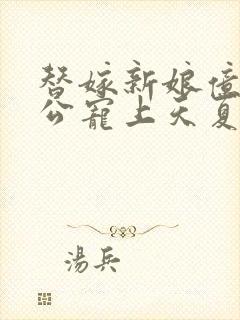 替嫁新娘億
公寵上天夏
湯兵